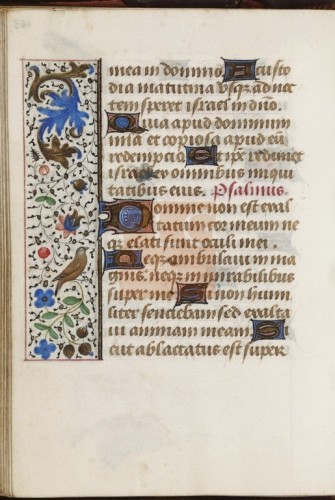 mea in domino. A custo
dia matutina usq̄ ad noc
tem speret israel in dn̄o.
Quia apud dominum
mīa et copiosa apud eū
redemptio. Et ip̄e redimet
israel ex omnibus iniqui
tatibus eius. Psalmus.
Domine non est exal
tatum cor meum ne
q̄ elati sunt oculi mei.
Neq̄ ambulavi in ma
gnis neq̄ in mirabilibus
super me. Si non humi
liter sentiebam sed exalta
vi animam meam. Si
cut ablactatus est super